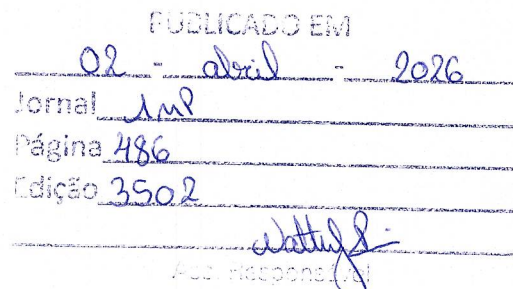 PUBLICADO EM
02 - abril - 2026
Jornal AMP
Página 486
Edição 3502
Ass. Responsável